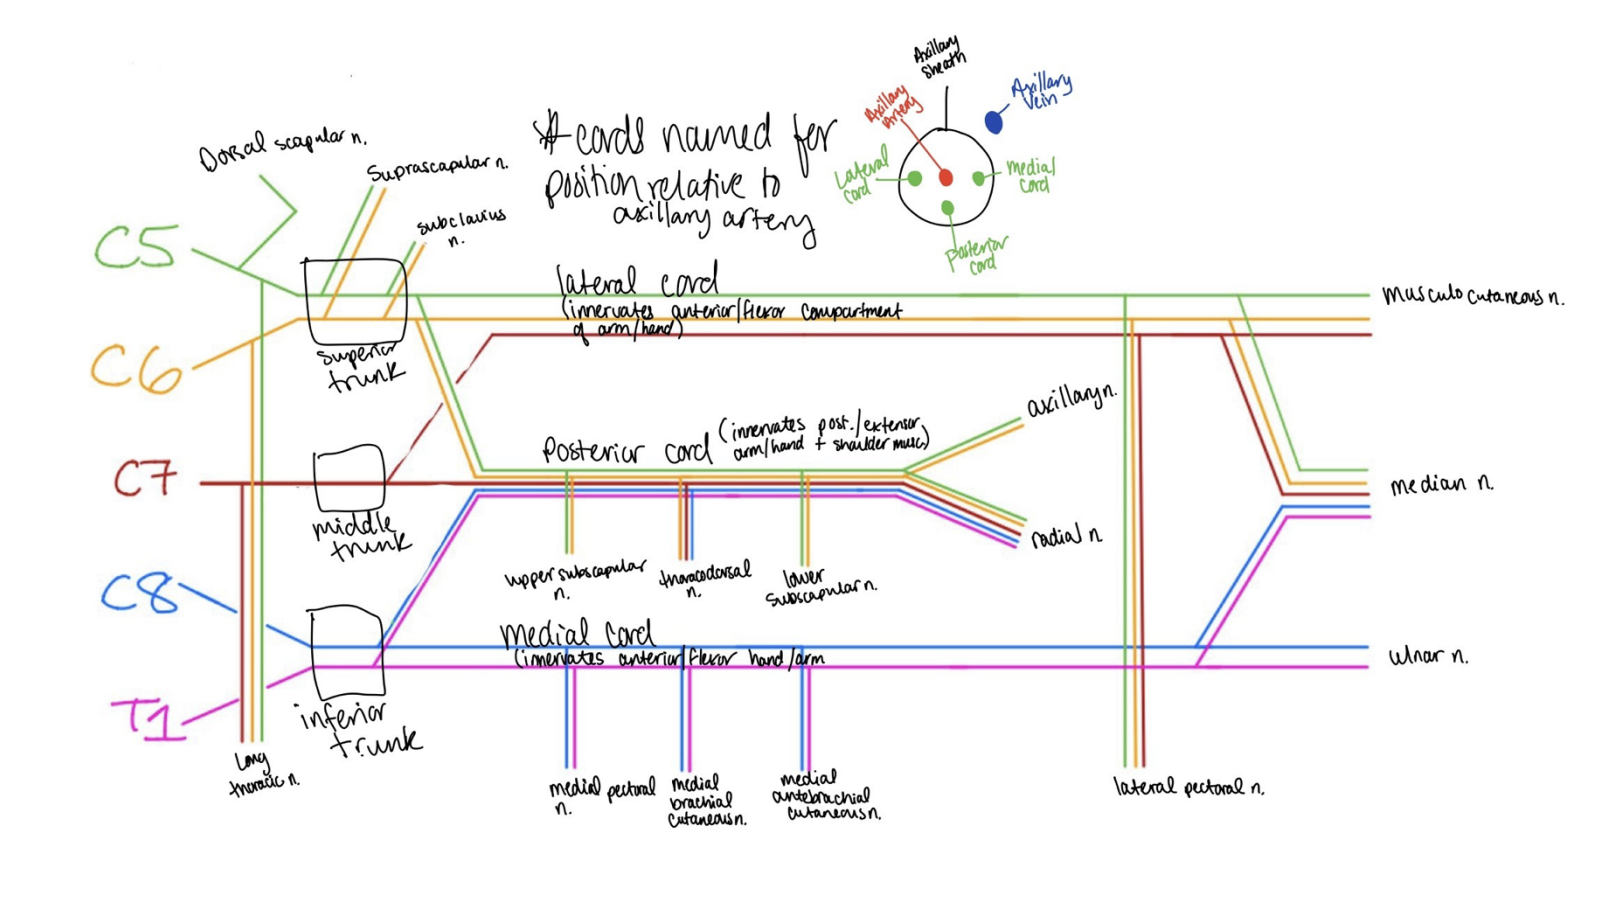 Axillary
sheath
Axillary
Artery
Axillary
Vein
Lateral
cord
Medial
cord
Posterior
cord
* cords named for
position relative to
axillary artery
Dorsal scapular n.
Suprascapular n.
subclavius
n.
C5
C6
C7
C8
T1
superior
trunk
middle
trunk
inferior
trunk
lateral cord
(innervates anterior/flexor compartment
of arm/hand)
Posterior cord
(innervates post./extensor
arm/hand + shoulder musc)
Medial Cord
(innervates anterior/flexor hand/arm
musculocutaneous n.
axillary n.
median n.
radial n
ulnar n.
upper subscapular
n.
thoracodorsal
n.
lower
subscapular n.
Long
thoracic n.
medial pectoral
n.
medial
brachial
cutaneous n.
medial
antebrachial
cutaneous n.
lateral pectoral n.